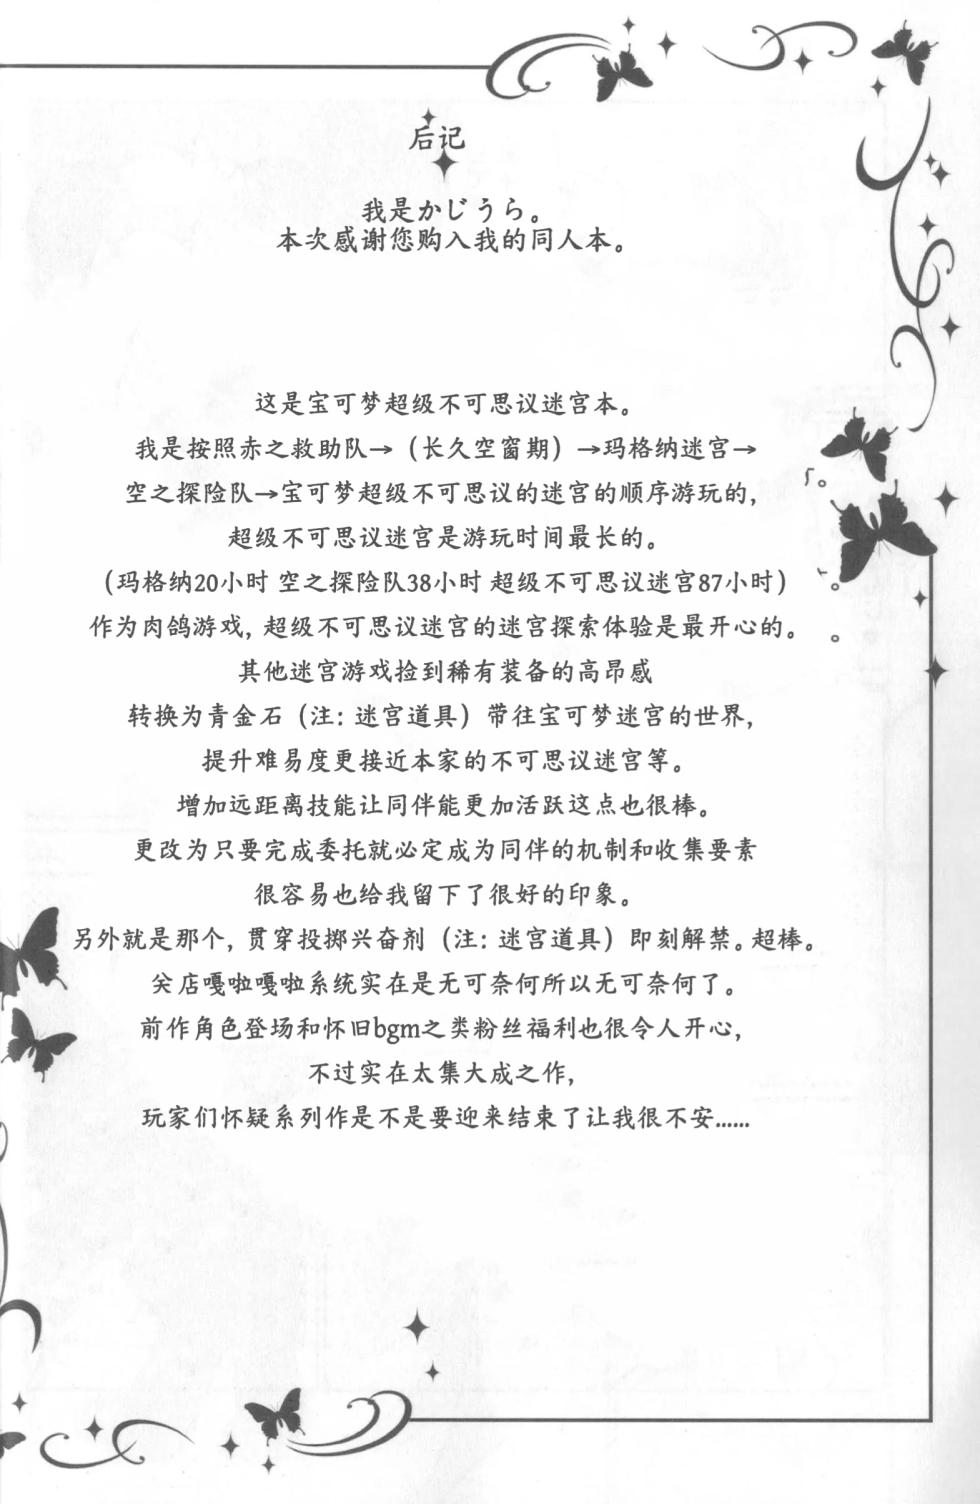 后记
我是かじうら。
本次感谢您购入我的同人本。
这是宝可梦超级不可思议迷宫本。
我是按照赤之救助队→（长久空窗期）→玛格纳迷宫→
空之探险队→宝可梦超级不可思议的迷宫的顺序游玩的，
超级不可思议迷宫是游玩时间最长的。
（玛格纳20小时 空之探险队38小时 超级不可思议迷宫87小时）
作为肉鸽游戏，超级不可思议迷宫的迷宫探索体验是最开心的。
其他迷宫游戏捡到稀有装备的高昂感
转换为青金石（注：迷宫道具）带往宝可梦迷宫的世界，
提升难易度更接近本家的不可思议迷宫等。
增加远距离技能让同伴能更加活跃这点也很棒。
更改为只要完成委托就必定成为同伴的机制和收集要素
很容易也给我留下了很好的印象。
另外就是那个，贯穿投掷兴奋剂（注：迷宫道具）即刻解禁。超棒。
店嘎啦嘎啦系统实在是无可奈何所以无可奈何了。
前作角色登场和怀旧bgm之类粉丝福利也很令人开心，
不过实在太集大成之作，
玩家们怀疑系列作是不是要迎来结束了让我很不安……